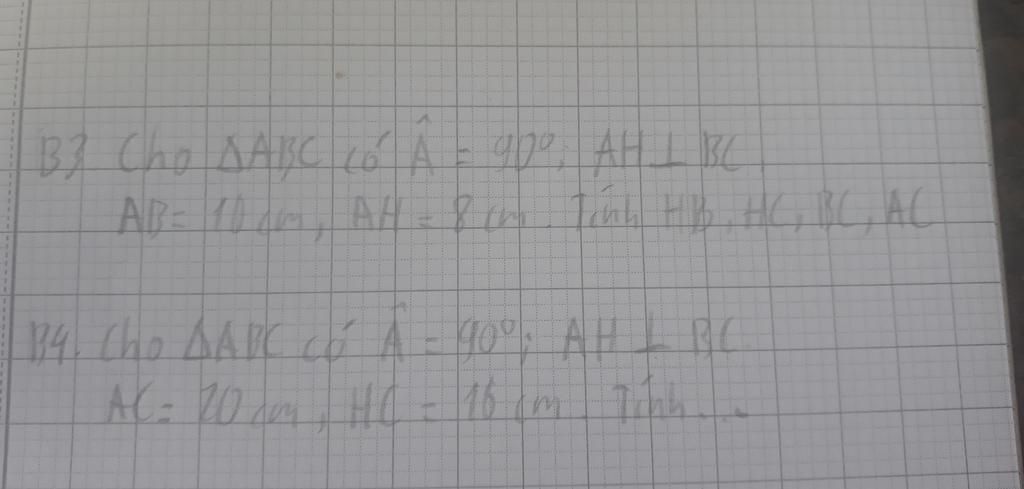 B3 Cho ΔABC có Â = 90°; AH ⊥ BC.
AB = 10 cm, AH = 8 cm. Tính HB, HC, BC, AC
B4. Cho ΔABC có Â = 90°; AH ⊥ BC
AC = 20 cm, HC = 16 cm. Tính...